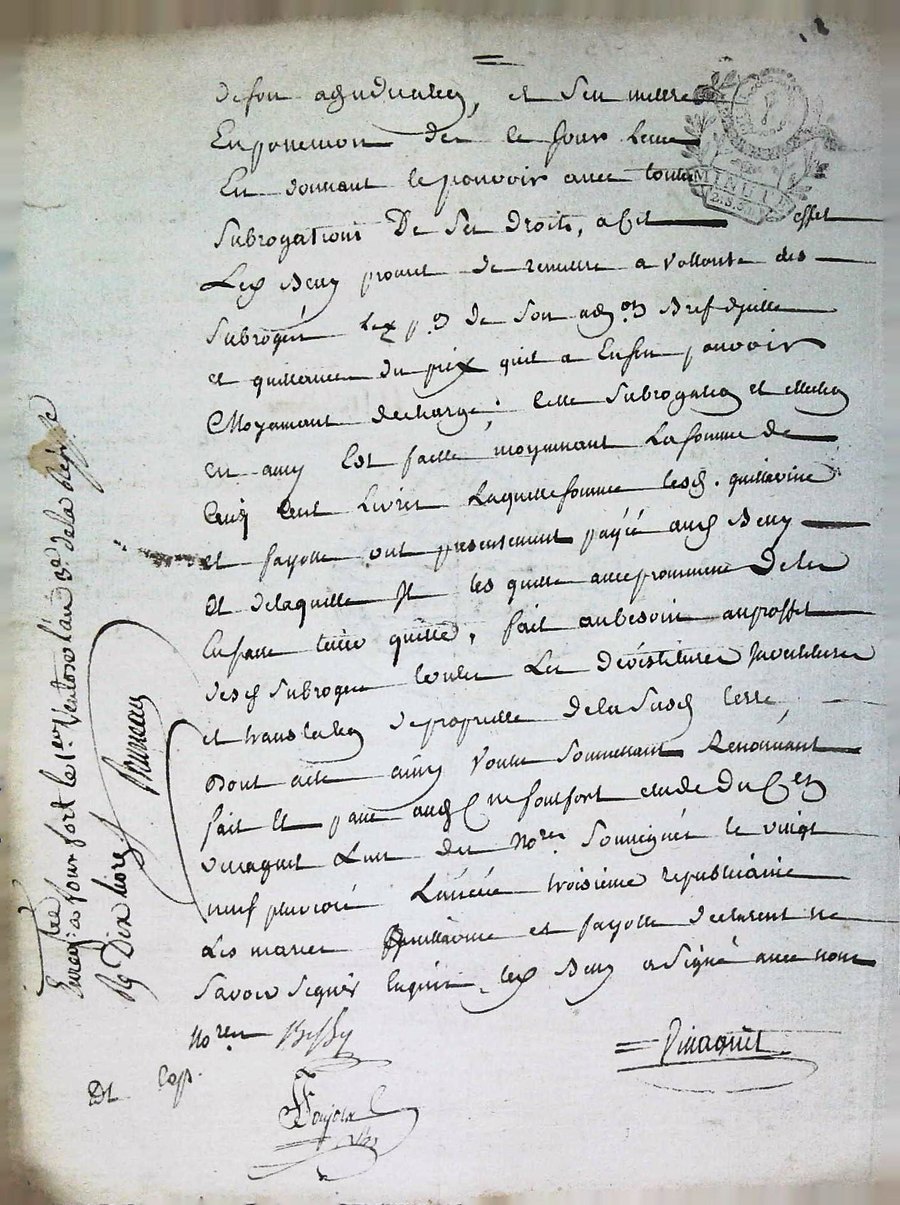 de son adjudication, et s'en mettre
En possession dès ce jour leur
En donnant le pouvoir avec toutes
MINUTE
Subrogations De ses droits, a cet effet
Led Bessy promet de remettre a vollonté des
subrogés Les p.es de son adj.on Bref dejuille
et quittances du prix quil a Ensin pouvoir
Moyenant decharge; Cette subrogation et
en amy Est faitte moyennant La somme de
Cent Livres Laquelle somme lesd. guillaume
et fayolle ont presentement payée aud Bessy
Et delaquelle Il les quitte avec promesse De les
En faire tenir quitte, fait au besoin au proffet
desd subrogés toutes Les devestitures Investitures
et translation de proprieté dela susd terre,
Dont acte ainsy Voulu Soummettant Renonnant
fait Et passé aud C ne fontfort etude Du C.en
Vinaquet L'un des No.res soussignés le vingt
neuf pluviose L'année troisieme republicaine
Les mariés guillaume et fayolle declarent ne
Savoir signer Enquis, led Bessy a signé avec nous
No.res Bessy
Vinaquet
Dt Cop.
Enreg.tré a fonfort le 1.er Ventose l'an 3.e de la Rép.
R Dix livres